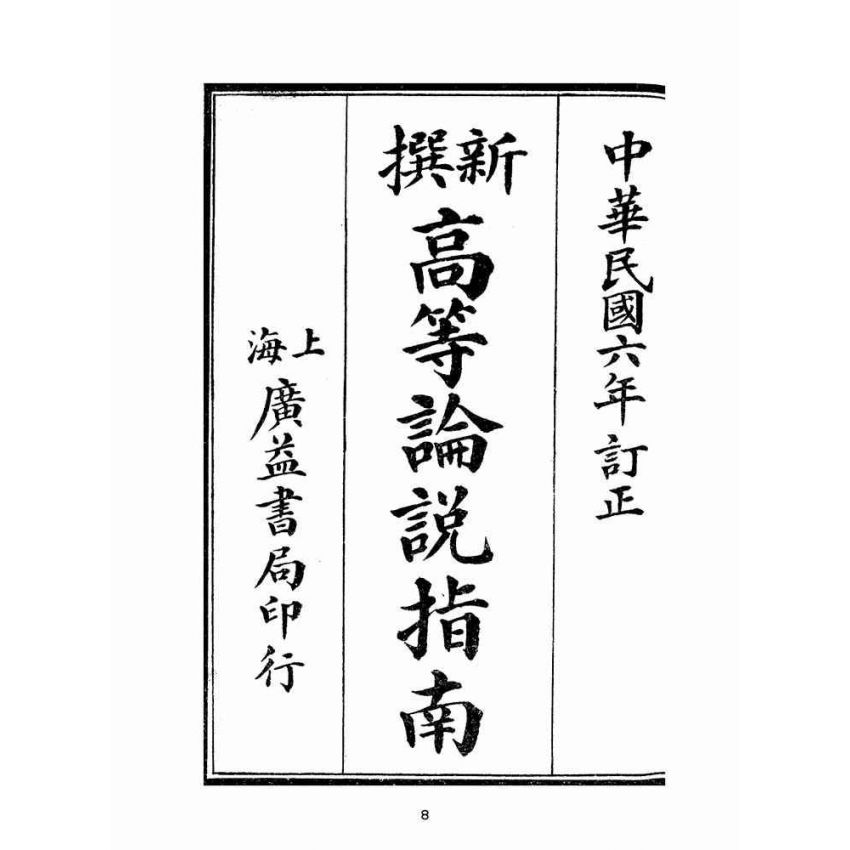 中華民國六年訂正
新撰
高等論說指南
上海
廣益書局印行
8